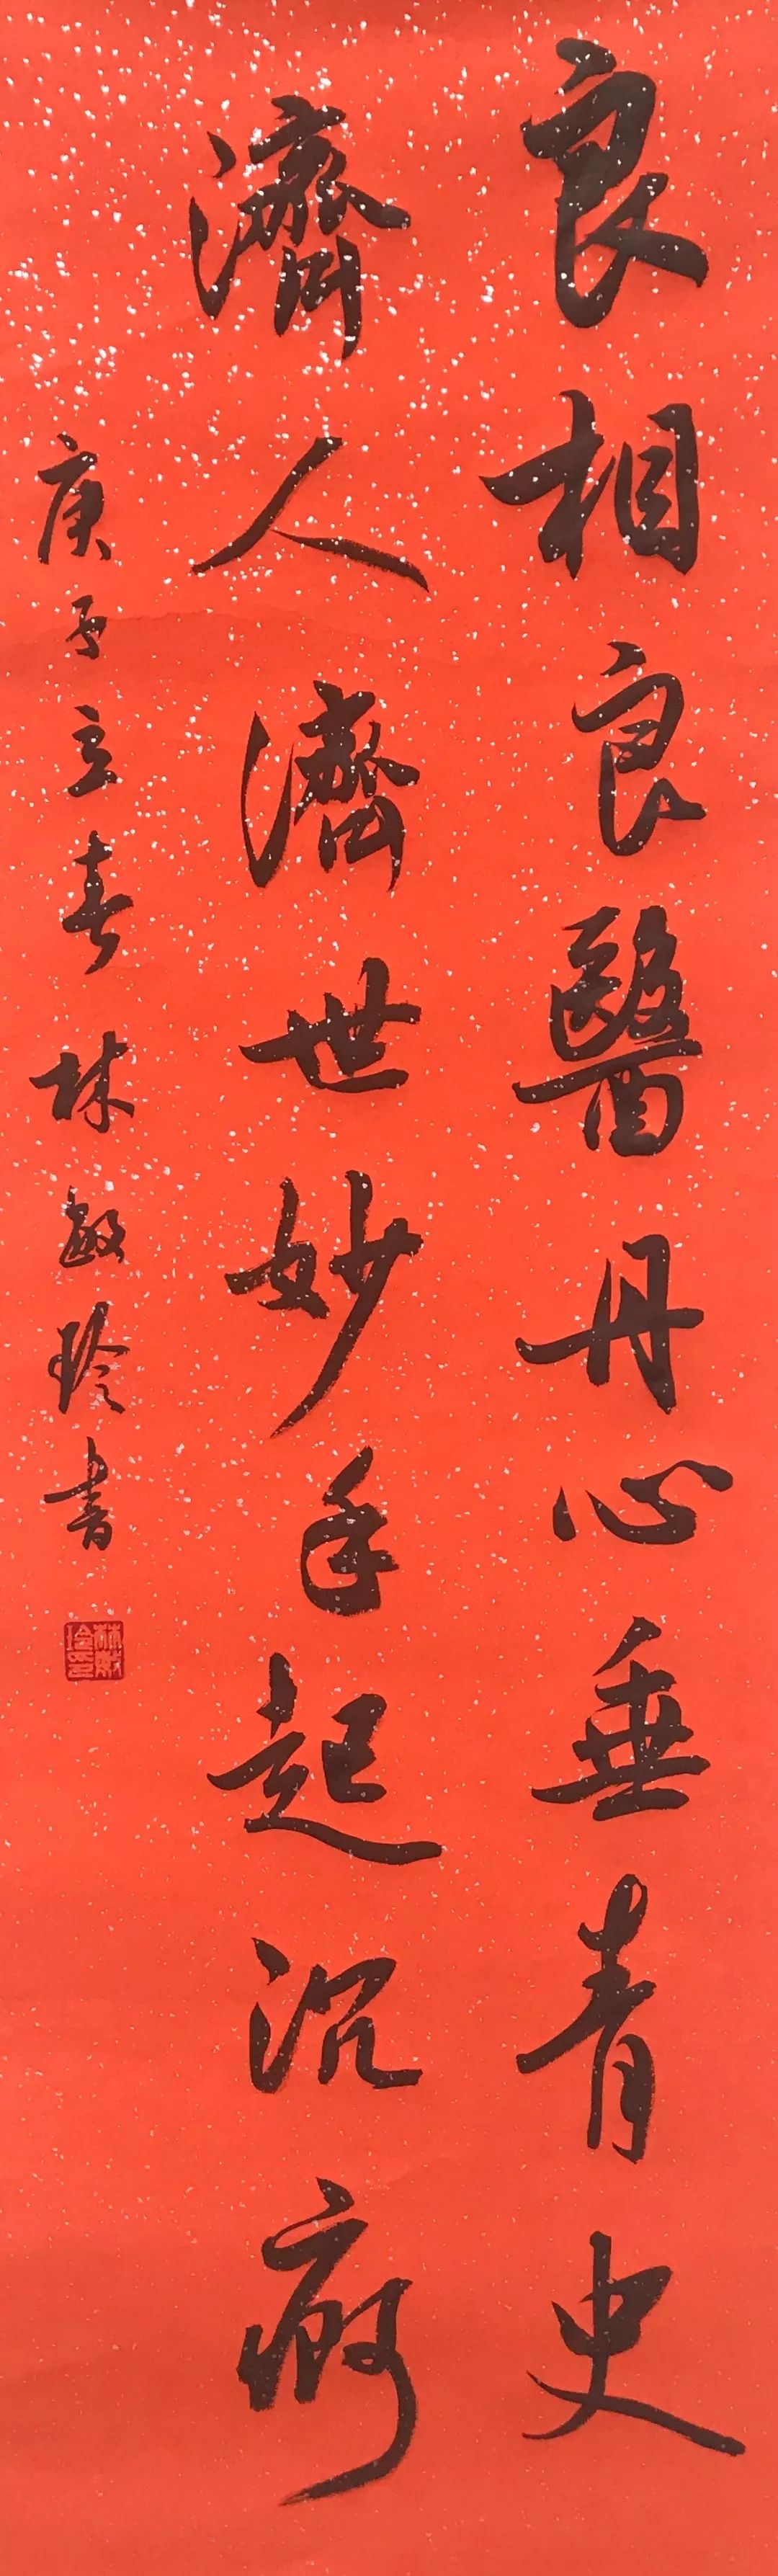 良相良醫丹心垂青史
濟人濟世妙手起沉疴
庚子立春林敏玲書